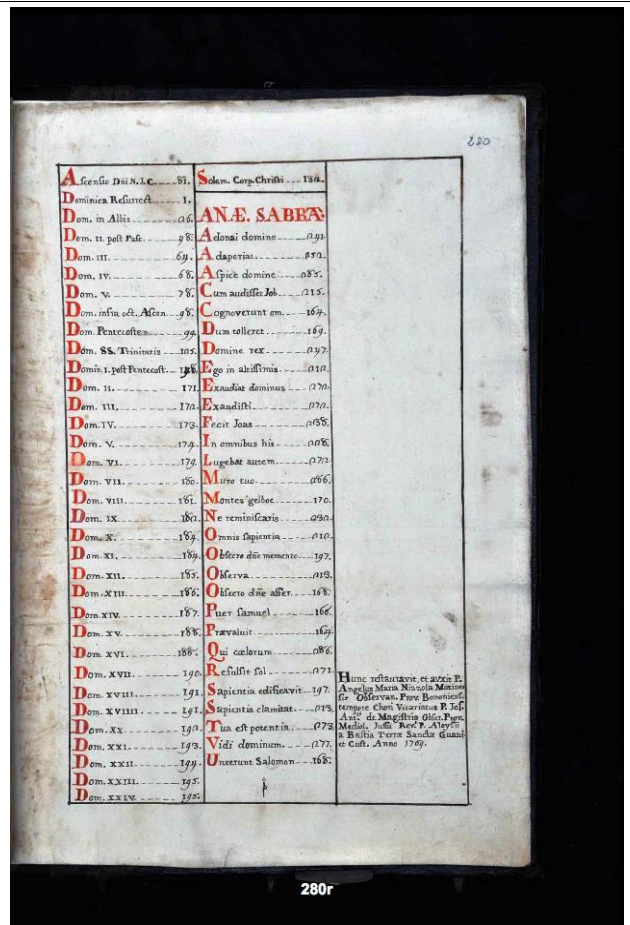 280
Ascensio Dñi N. J. C. 81.
Dominica Resurrect. 1.
Dom. in Albis 26.
Dom. II. post Pasc. 48.
Dom. III. 64.
Dom. IV. 68.
Dom. V. 78.
Dom. infra oct. Ascen. 98.
Dom. Pentecosten 99.
Dom. SS. Trinitatis 125.
Domin. I. post Pentecost.
Dom. II. 171.
Dom. III. 172.
Dom. IV. 173.
Dom. V. 174.
Dom. VI. 179.
Dom. VII. 180.
Dom. VIII. 181.
Dom. IX 182.
Dom. X. 184.
Dom. XI. 184.
Dom. XII. 185.
Dom. XIII. 186.
Dom. XIV. 187.
Dom. XV. 188.
Dom. XVI. 188.
Dom. XVII. 190.
Dom. XVIII. 191.
Dom. XVIIII. 191.
Dom. XX. 192.
Dom. XXI. 193.
Dom. XXII. 194.
Dom. XXIII. 195.
Dom. XXIV. 195.
Solem. Corp. Christi 132.
ANÆ. SABBA.
Adonai domine 241.
Adaperiat 252.
Aspice domine 285.
Cum audisset Job 215.
Cognoverunt om. 164.
Dum tolleret 169.
Domine rex 247.
Ego in altissimis 212.
Exaudiat dominus 272.
Exaudisti 272.
Fecit Joas 238.
In omnibus his 228.
Lugebat autem 272.
Muro tuo 286.
Montes gelboe 170.
Ne reminiscaris 232.
Omnis sapientia 212.
Obsecro dñe memento 197.
Observa 213.
Obsecro dñe aufer 168.
Puer samuel 166.
Prævaluit 164.
Qui cœlorum 286.
Refulsit sol 271.
Sapientia edificavit 197.
Sapientia clamitat 213.
Tua est potentia 273.
Vidi dominum 277.
Unxerunt Salomon 168.
Hunc restauravit, et auxit P.
Angelus Maria Maxime
Observan. Prov. Bononiens.
tempore Chori Vicariatus P. Jos.
Ant. de Magistris Obser. Prov.
Mediol. Jussu Rev. P. Aloysii
a Bustia Terræ Sanctæ Guard
et Cust. Anno 1764.
280r